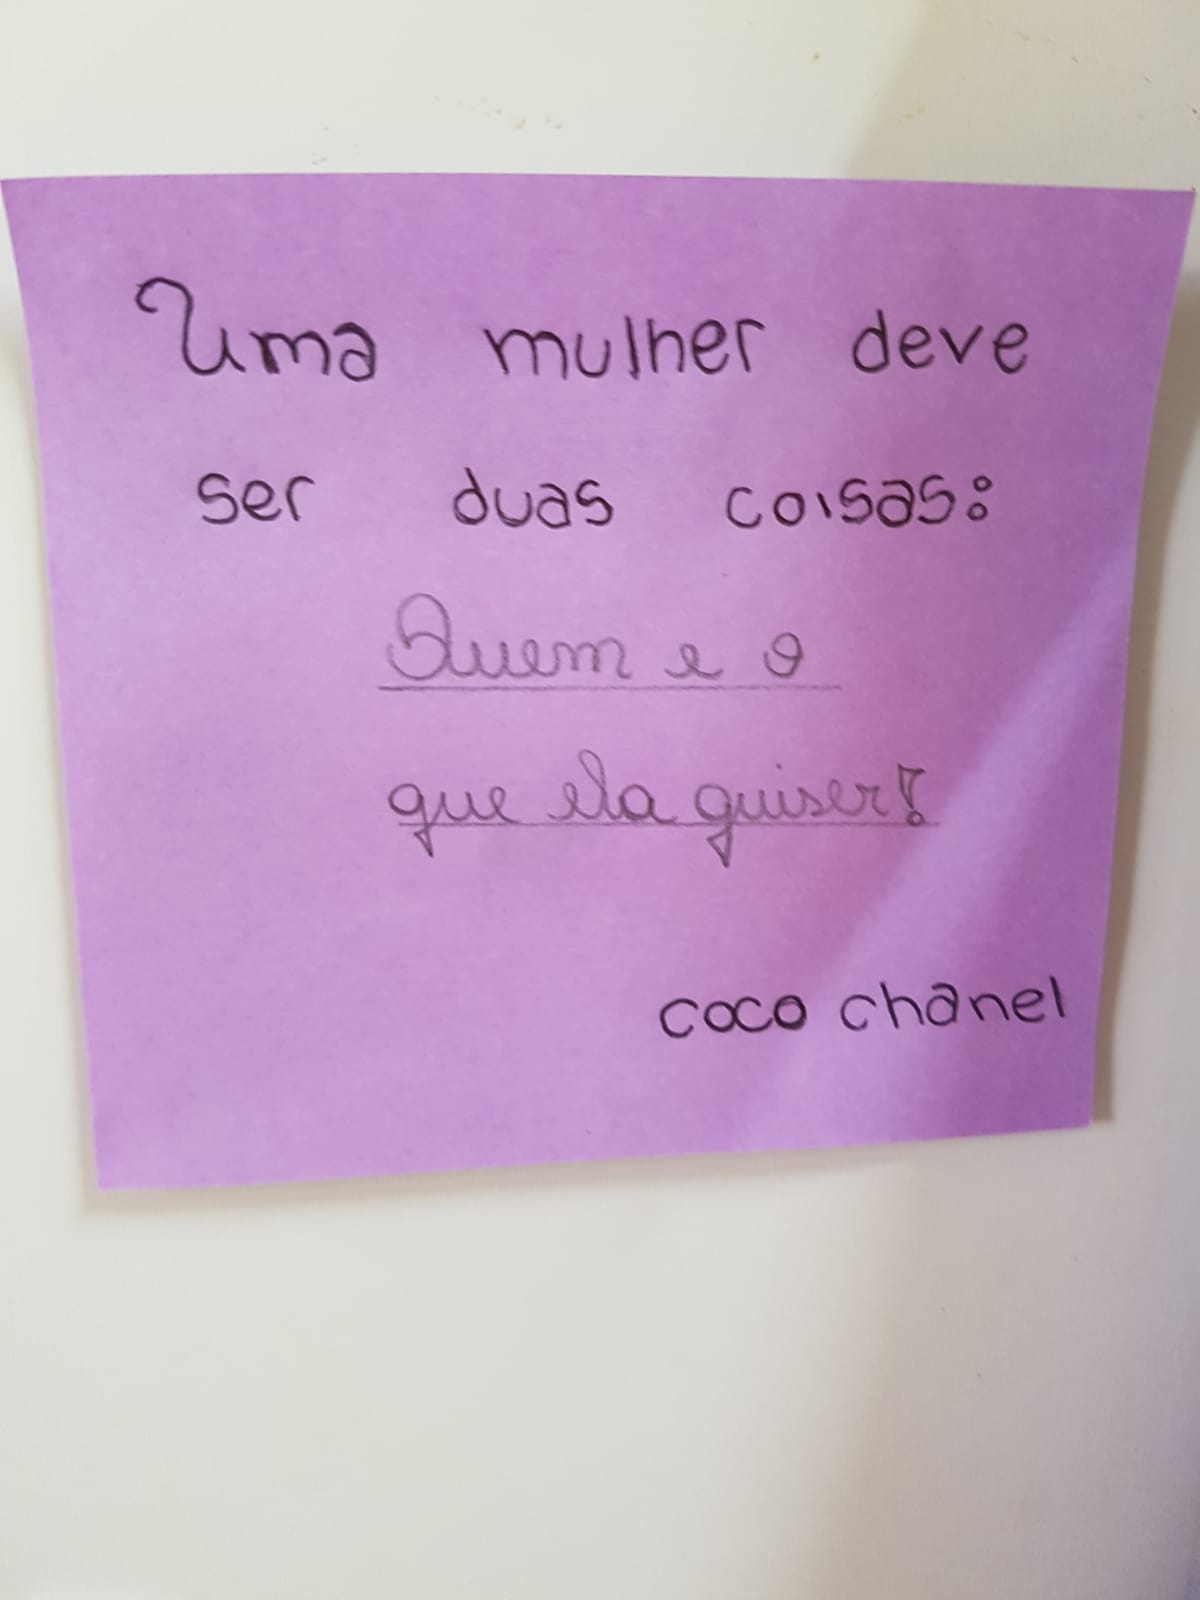 Uma mulher deve
ser duas coisas:
Quem e o
que ela quiser!
coco chanel